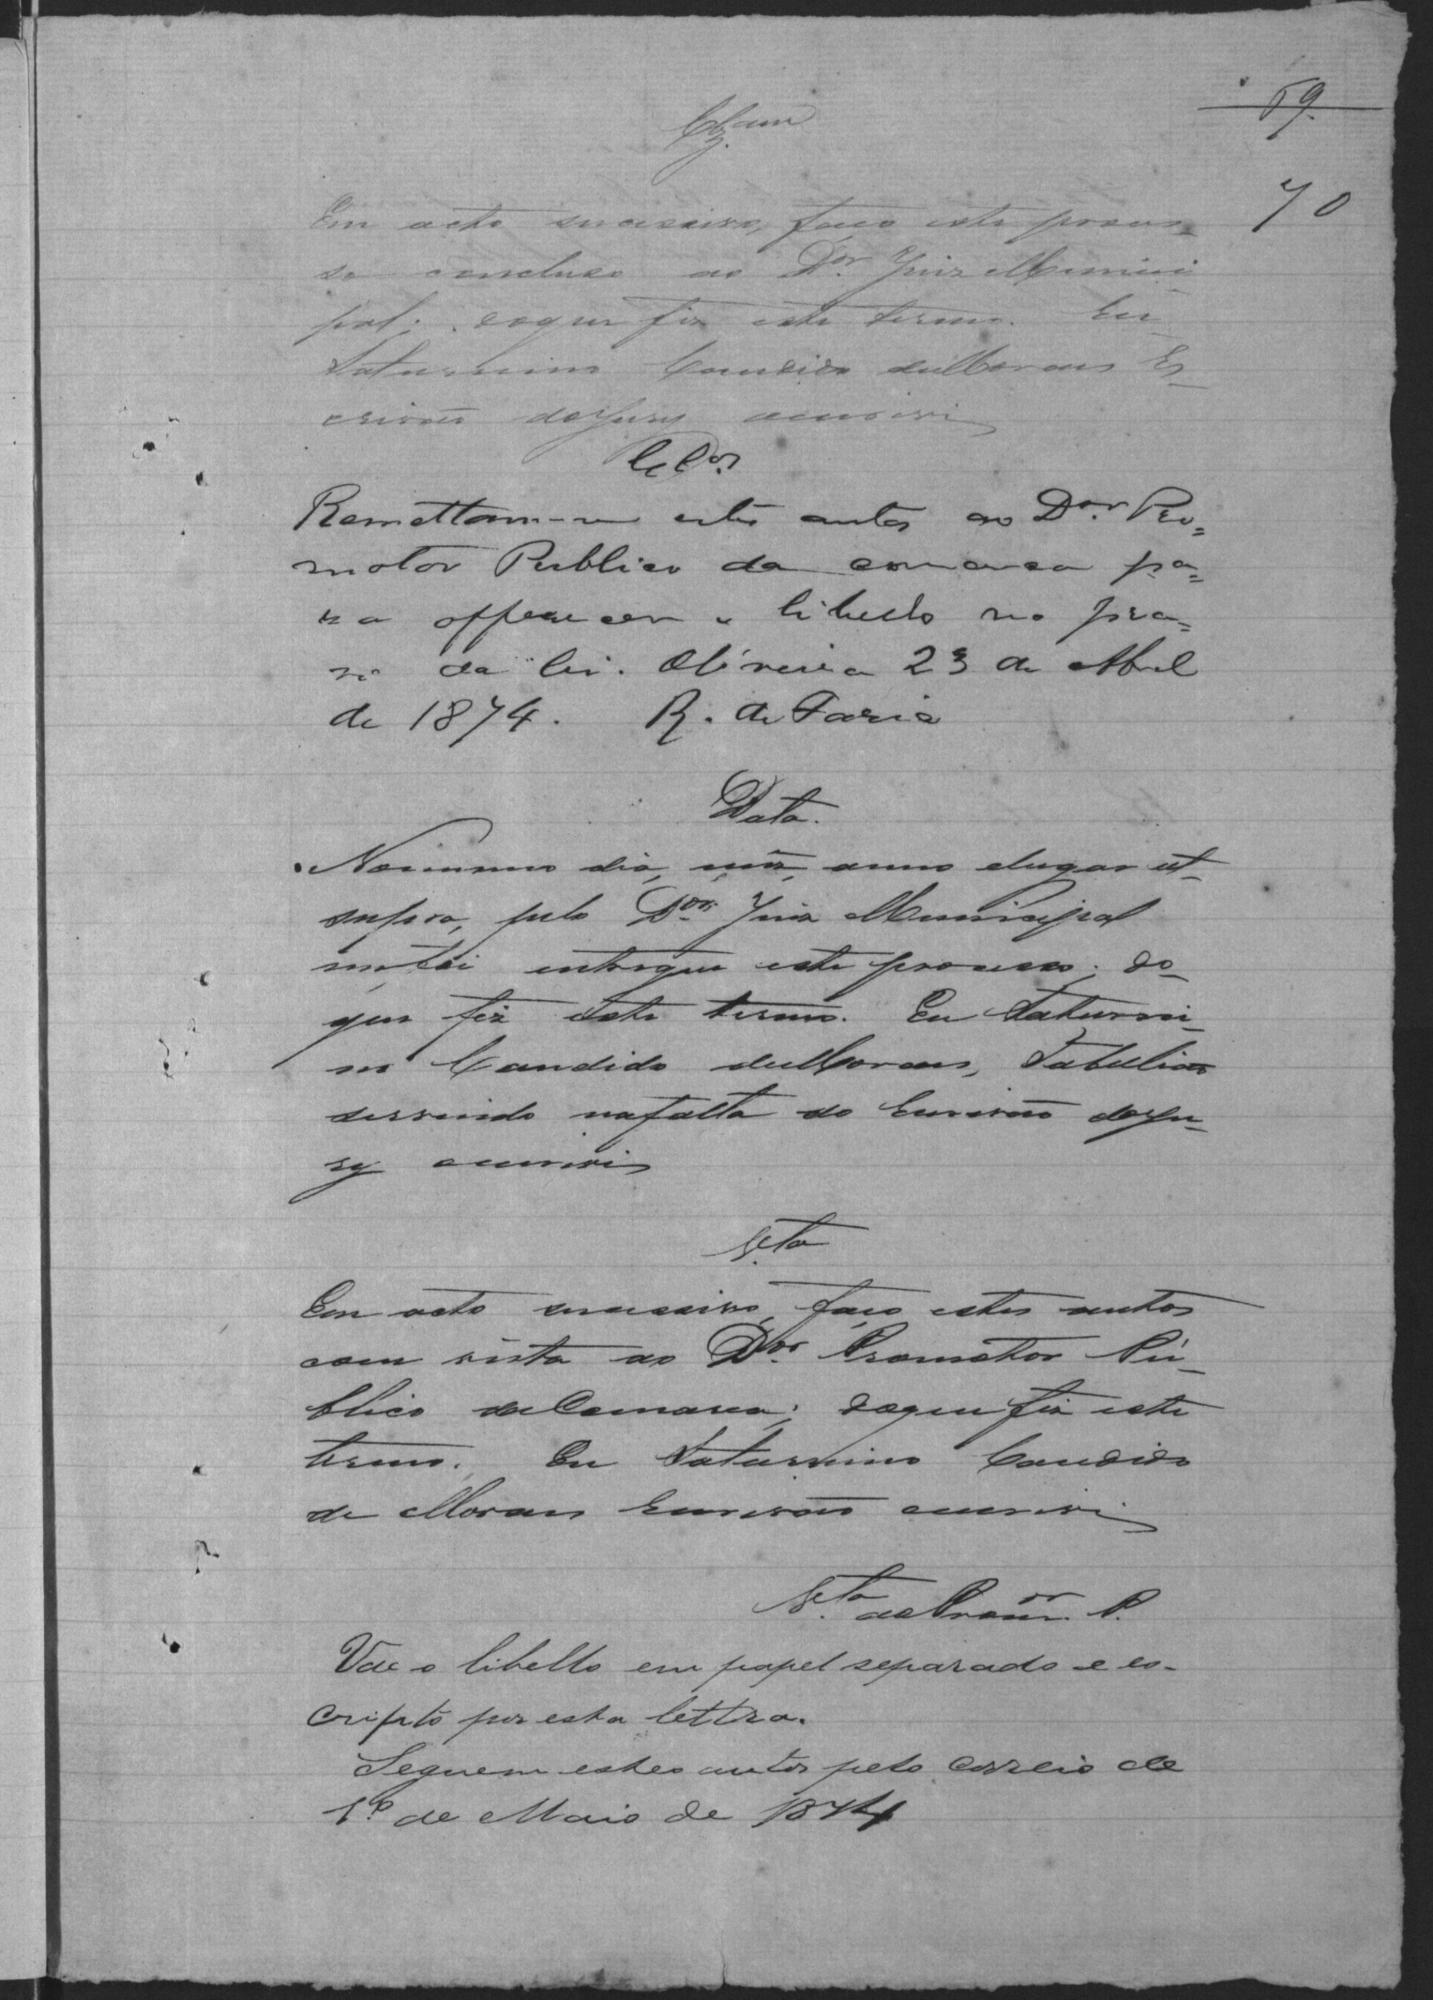 69.
70
Clzam
Em acto sucessivo, faço este proces-
so concluso ao Dor. Juiz Munici
pal; do que fiz este termo. Eu
Saturnino Candido de Moraes Es-
crivão do Jury escrevi
Clos.
Remettam-se estes autos ao Dor. Pro=
motor Publico da comarca pa=
ra offerecer o libello no pra=
so da lei. Oliveira 23 de Abril
de 1874. R. de Faria
Data.
No mesmo dia, mez, anno e lugar ut-
supra, pelo Dor. Juiz Municipal
me foi entregue este processo; do-
que fiz este termo. Eu Saturni-
no Candido de Moraes, Tabelião
servindo na falta do Escrivão do Ju-
ry escrevi
Vta
Em acto sucessivo, faço estes autos
com vista ao Dor. Promotor Pu-
blico da Comarca; do que fiz este
termo. Eu Saturnino Candido
de Moraes Escrivão escrevi
Vta. ao Promor. P.
Vae o libello em papel separado e es-
cripto por esta lettra.
Seguem estes autos pelo correio de
1º de Maio de 1874